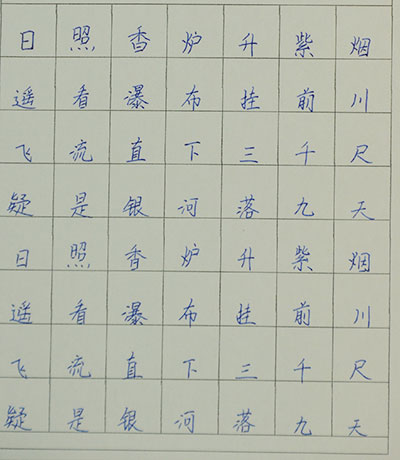 日照香炉升紫烟
遥看瀑布挂前川
飞流直下三千尺
疑是银河落九天
日照香炉升紫烟
遥看瀑布挂前川
飞流直下三千尺
疑是银河落九天